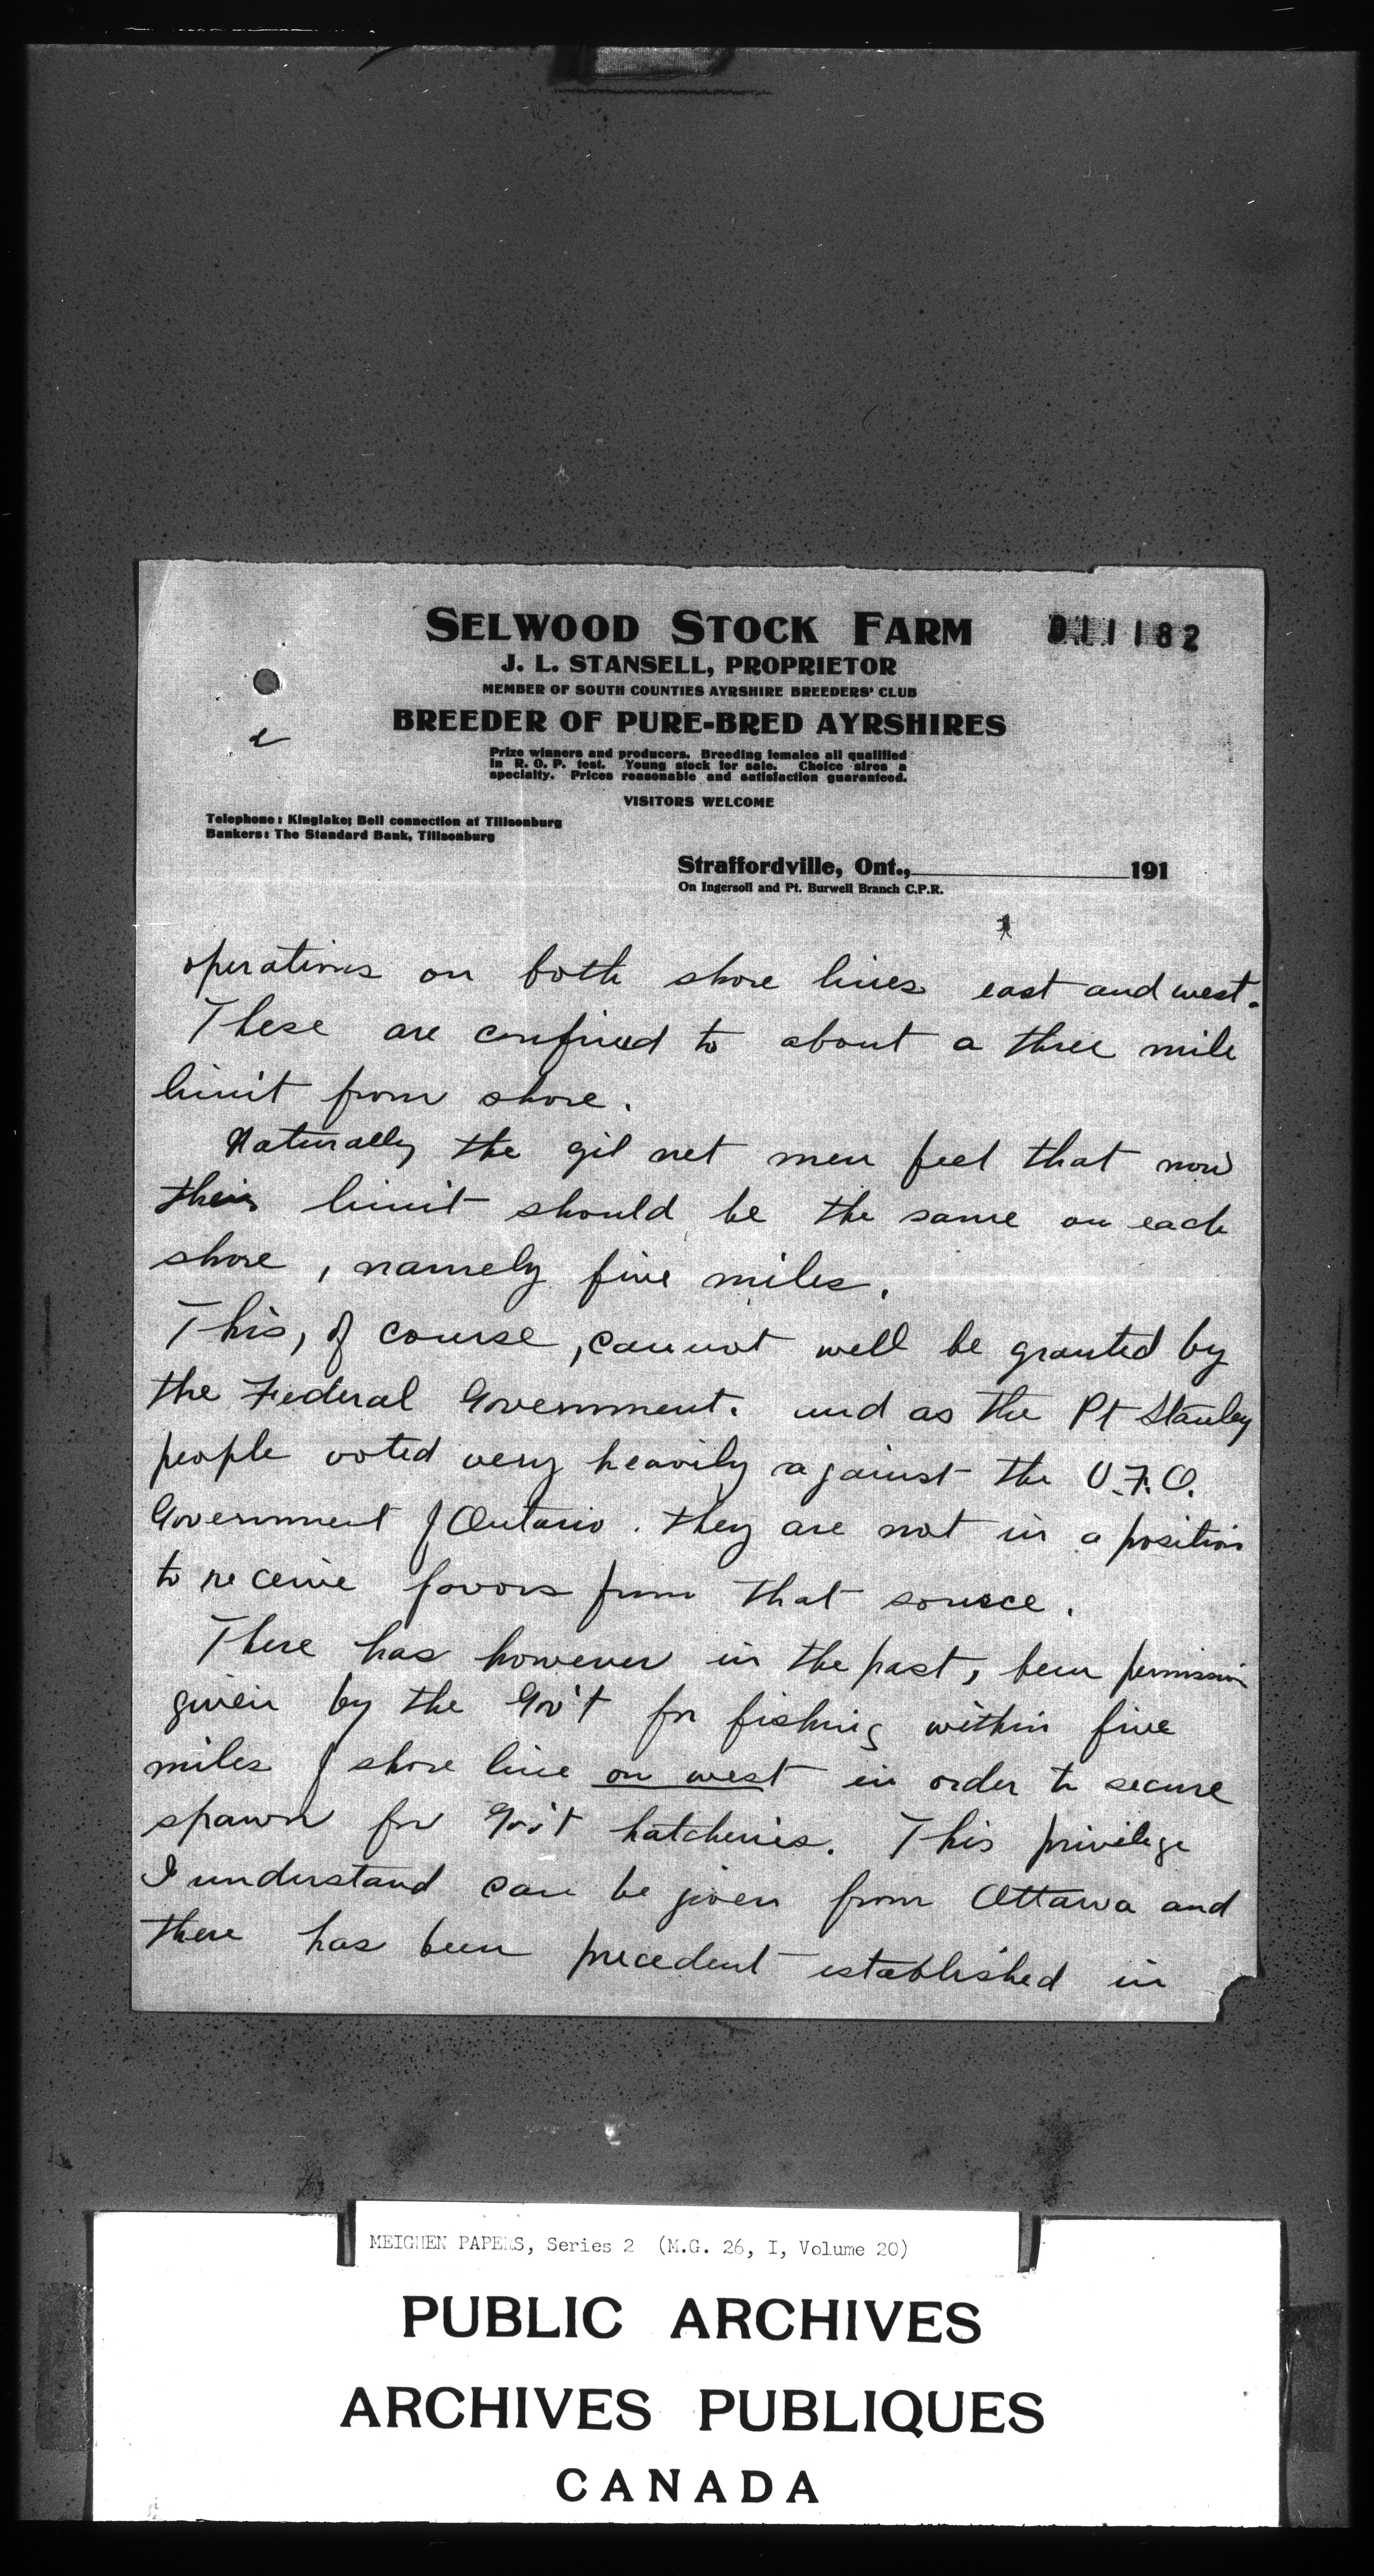 SELWOOD STOCK FARM
011182
J. L. STANSELL, PROPRIETOR
MEMBER OF SOUTH COUNTIES AYRSHIRE BREEDERS' CLUB
BREEDER OF PURE-BRED AYRSHIRES
Prize winners and producers. Breeding females all qualified
in R. O. P. test. Young stock for sale. Choice sires a
specialty. Prices reasonable and satisfaction guaranteed.
VISITORS WELCOME
Telephone: Kinglake; Bell connection at Tillsonburg
Bankers: The Standard Bank, Tillsonburg
Straffordville, Ont., 191
On Ingersoll and Pt. Burwell Branch C.P.R.
operations on both shore lines east and west.
These are confined to about a three mile
limit from shore.
Naturally the gil net men feel that now
their limit should be the same on each
shore, namely five miles.
This, of course, cannot well be granted by
the Federal Government. and as the Pt Stanley
people voted very heavily against the U.F.O.
Government of Ontario. they are not in a position
to receive favors from that source.
There has however in the past, been permission
given by the Gov't for fishing within five
miles of shore line on west in order to secure
spawn for Gov't hatcheries. This privilege
I understand can be given from Ottawa and
there has been precedent established in
MEIGHEN PAPERS, Series 2 (M.G. 26, I, Volume 20)
PUBLIC ARCHIVES
ARCHIVES PUBLIQUES
CANADA